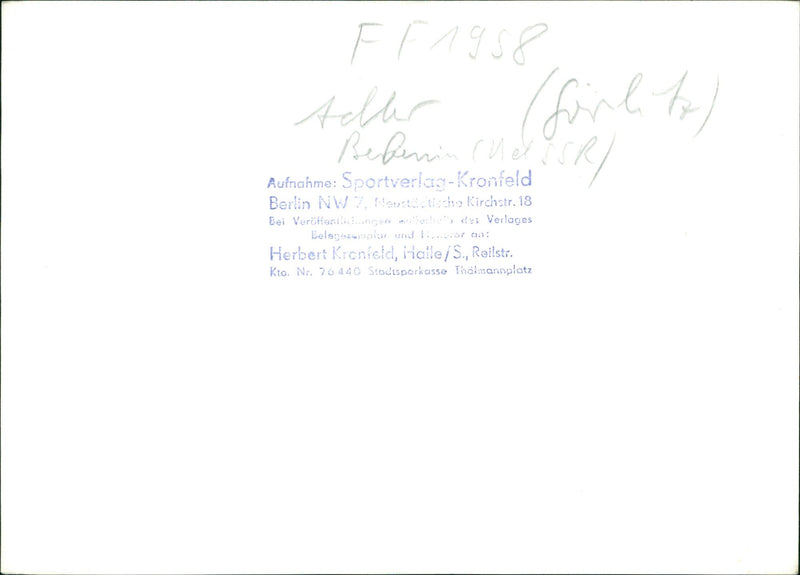 FF 1958
Adler (Görlitz)
(UdSSR)
Aufnahme: Sportverlag-Kronfeld
Berlin NW 7, Neustädtische Kirchstr. 18
Bei Veröffentlichungen außerhalb des Verlages
Belegexemplar und Honorar an:
Herbert Kronfeld, Halle/S., Reilstr.
Kto. Nr. 76440 Stadtsparkasse Thälmannplatz